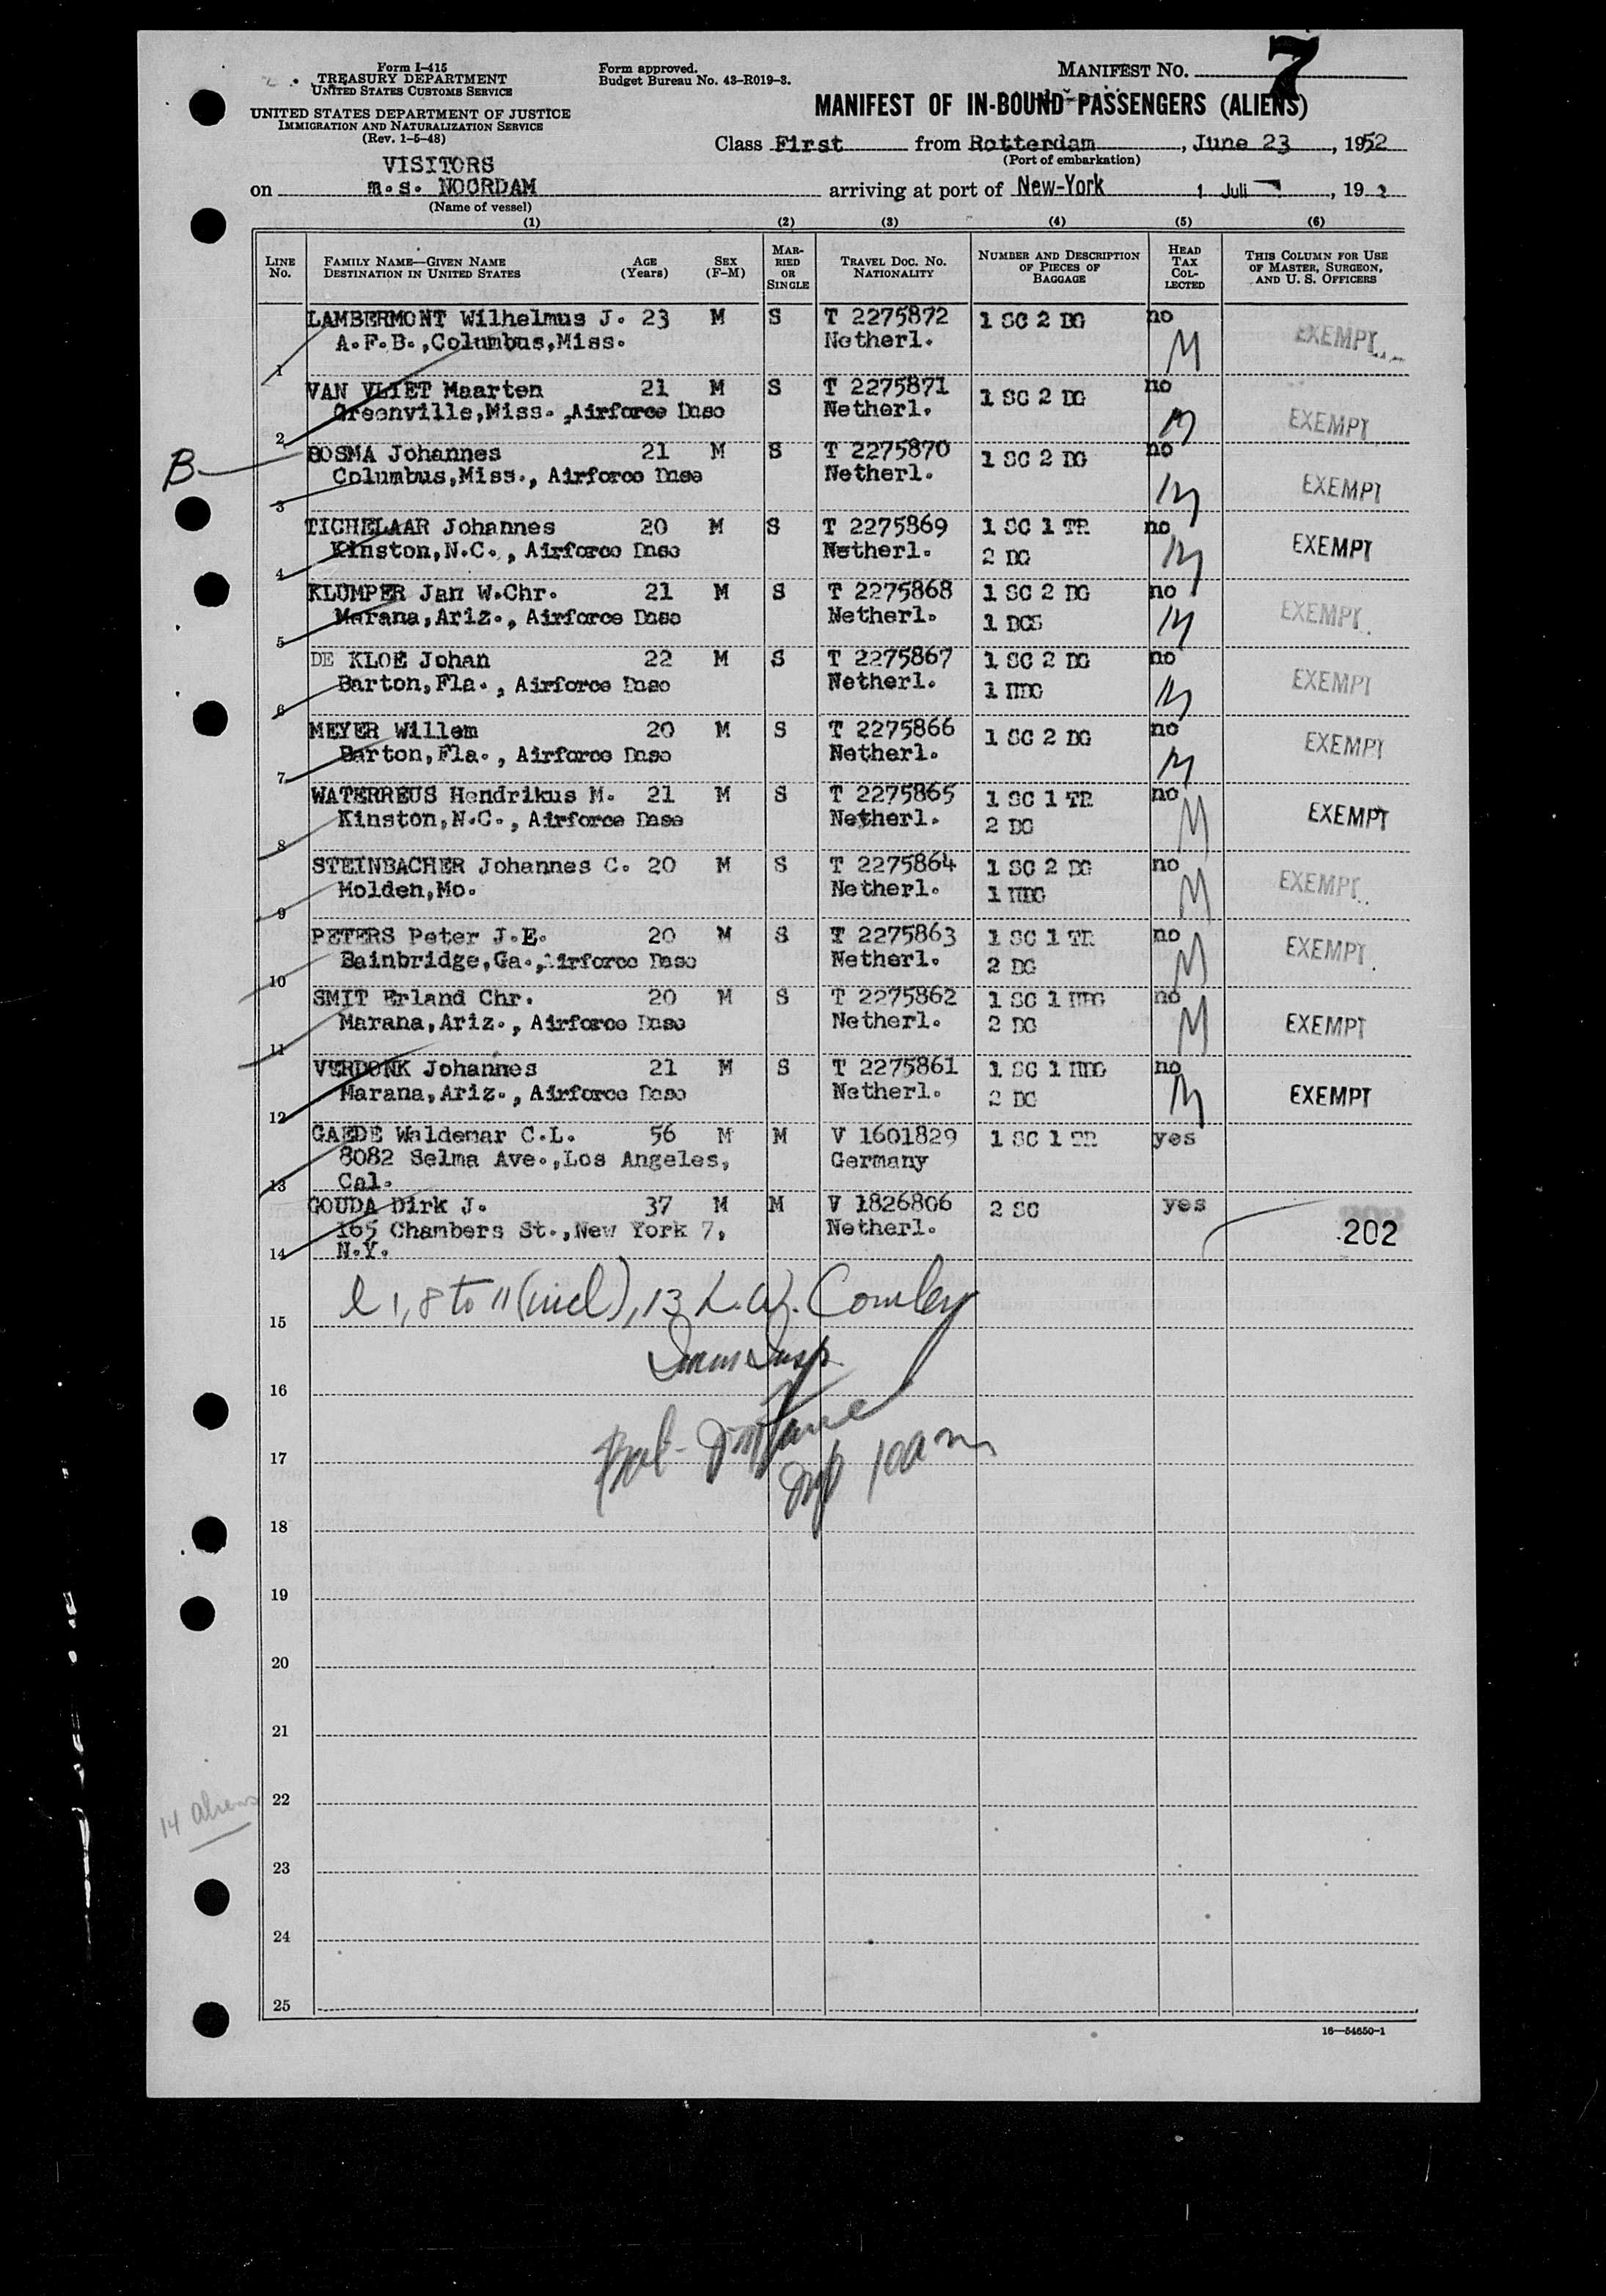 7
Form I-415
TREASURY DEPARTMENT
UNITED STATES CUSTOMS SERVICE
UNITED STATES DEPARTMENT OF JUSTICE
IMMIGRATION AND NATURALIZATION SERVICE
(Rev. 1-5-48)
Form approved.
Budget Bureau No. 43-R019-3.
MANIFEST NO.
MANIFEST OF IN-BOUND PASSENGERS (ALIENS)
Class First from Rotterdam, June 23, 1952
(Port of embarkation)
VISITORS
on m.s. NOORDAM arriving at port of New-York 1 Juli, 19
(Name of vessel)
(1) (2) (3) (4) (5) (6)
LINE NO. FAMILY NAME—GIVEN NAME DESTINATION IN UNITED STATES AGE (Years) SEX (F-M) MARRIED OR SINGLE TRAVEL DOC. NO. NATIONALITY NUMBER AND DESCRIPTION OF PIECES OF BAGGAGE HEAD TAX COLLECTED THIS COLUMN FOR USE OF MASTER, SURGEON, AND U. S. OFFICERS
LAMBERMONT Wilhelmus J. 23 M S T 2275872 1 SC 2 DG no EXEMPT
1 A.F.B.,Columbus,Miss. Netherl. M
VAN VLIET Maarten 21 M S T 2275871 1 SC 2 DG no EXEMPT
2 Greenville,Miss.,Airforce Base Netherl. M
B BOSMA Johannes 21 M S T 2275870 1 SC 2 DG no EXEMPT
3 Columbus,Miss., Airforce Base Netherl. M
TICHELAAR Johannes 20 M S T 2275869 1 SC 1 TR no EXEMPT
4 Kinston,N.C., Airforce Base Netherl. 2 DG M
KLUMPER Jan W.Chr. 21 M S T 2275868 1 SC 2 DG no EXEMPT
5 Marana,Ariz., Airforce Base Netherl. 1 DCS M
DE KLOE Johan 22 M S T 2275867 1 SC 2 DG no EXEMPT
6 Barton,Fla., Airforce Base Netherl. 1 HDG M
MEYER Willem 20 M S T 2275866 1 SC 2 DG no EXEMPT
7 Barton,Fla., Airforce Base Netherl. M
WATERREUS Hendrikus M. 21 M S T 2275865 1 SC 1 TR no EXEMPT
8 Kinston,N.C., Airforce Base Netherl. 2 DG M
STEINBACHER Johannes C. 20 M S T 2275864 1 SC 2 DG no EXEMPT
9 Molden,Mo. Netherl. 1 HDG M
PETERS Peter J.E. 20 M S T 2275863 1 SC 1 TR no EXEMPT
10 Bainbridge,Ga.,Airforce Base Netherl. 2 DG M
SMIT Erland Chr. 20 M S T 2275862 1 SC 1 HDG no EXEMPT
11 Marana,Ariz., Airforce Base Netherl. 2 DG M
VERDONK Johannes 21 M S T 2275861 1 SC 1 HDG no EXEMPT
12 Marana,Ariz., Airforce Base Netherl. 2 DG M
GAEDE Waldemar C.L. 56 M M V 1601829 1 SC 1 TR yes
8082 Selma Ave.,Los Angeles, Germany
13 Cal.
GOUDA Dirk J. 37 M M V 1826806 2 SC yes
165 Chambers St.,New York 7, Netherl. 202
14 N.Y.
l 1, 8 to 11 (incl), 13 L.W. Conley
15
Imm Insp.
16
17
18
19
20
21
22
14 aliens
23
24
25
16—54650-1